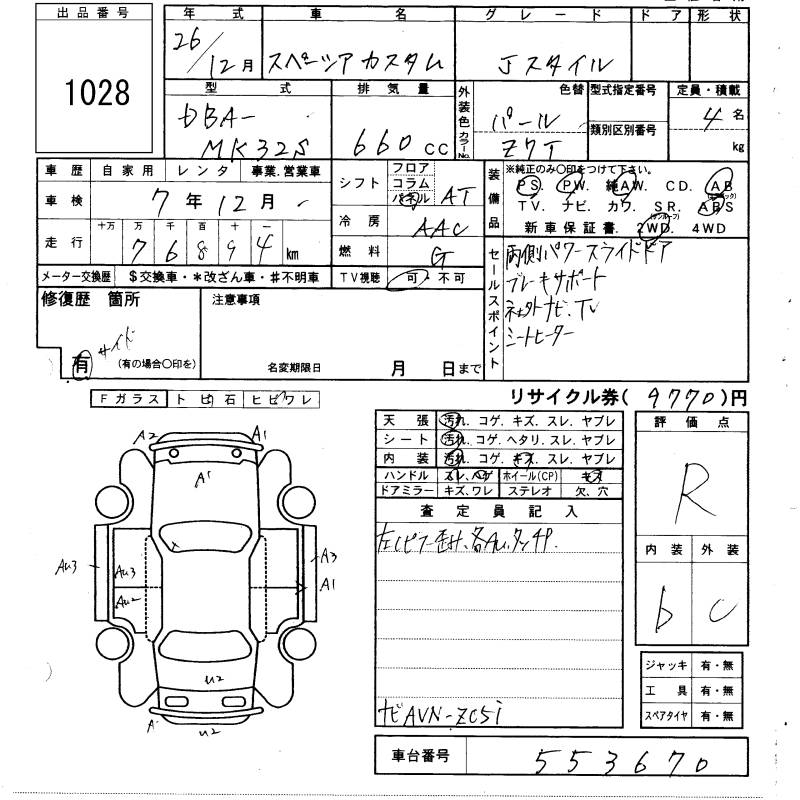 出品番号
1028
年 式 車 名 グレード ドア 形状
26/12月 スペーシア カスタム Jスタイル
型 式 排気量 外装色 色替 型式指定番号 定員・積載
DBA-MK32S 660 CC パール カラーNo. Z7T 類別区別番号 4名 kg
車歴 自家用 レンタ 事業.営業車
車検 7年 12月
走行 十万 万 千 百 十 一
7 6 8 9 4 km
メーター交換歴 $交換車・*改ざん車・#不明車
シフト フロア コラム パネル AT
冷房 AAC
燃料 G
TV視聴 可・不可
装備品 ※純正のみ〇印をつけて下さい。
PS. PW. 純AW. CD. AB
TV. ナビ. カワ. SR. ABS
新車保証書. 2WD. 4WD
セールスポイント
両側パワースライドドア
ブレーキサポート
社外ナビ.TV
シートヒーター
修復歴 箇所
サイド
有 (有の場合〇印を)
注意事項
名変期限日 月 日まで
リサイクル券(9770)円
Fガラス トビ石 ヒビワレ
A2 A1
A1
Au3 Au3 A3
Au2 A1
U2
A
U2
天張 汚れ. コゲ. キズ. スレ. ヤブレ
シート 汚れ. コゲ. ヘタリ. スレ. ヤブレ
内装 汚れ. コゲ. キズ. スレ. ヤブレ
ハンドル スレ. ハゲ ホイール(CP) キズ
ドアミラー キズ. ワレ ステレオ 欠. 穴
査定員記入
ナビAVN-ZC5i
評価点
R
内装 外装
b C
ジャッキ 有・無
工具 有・無
スペアタイヤ 有・無
車台番号 553670